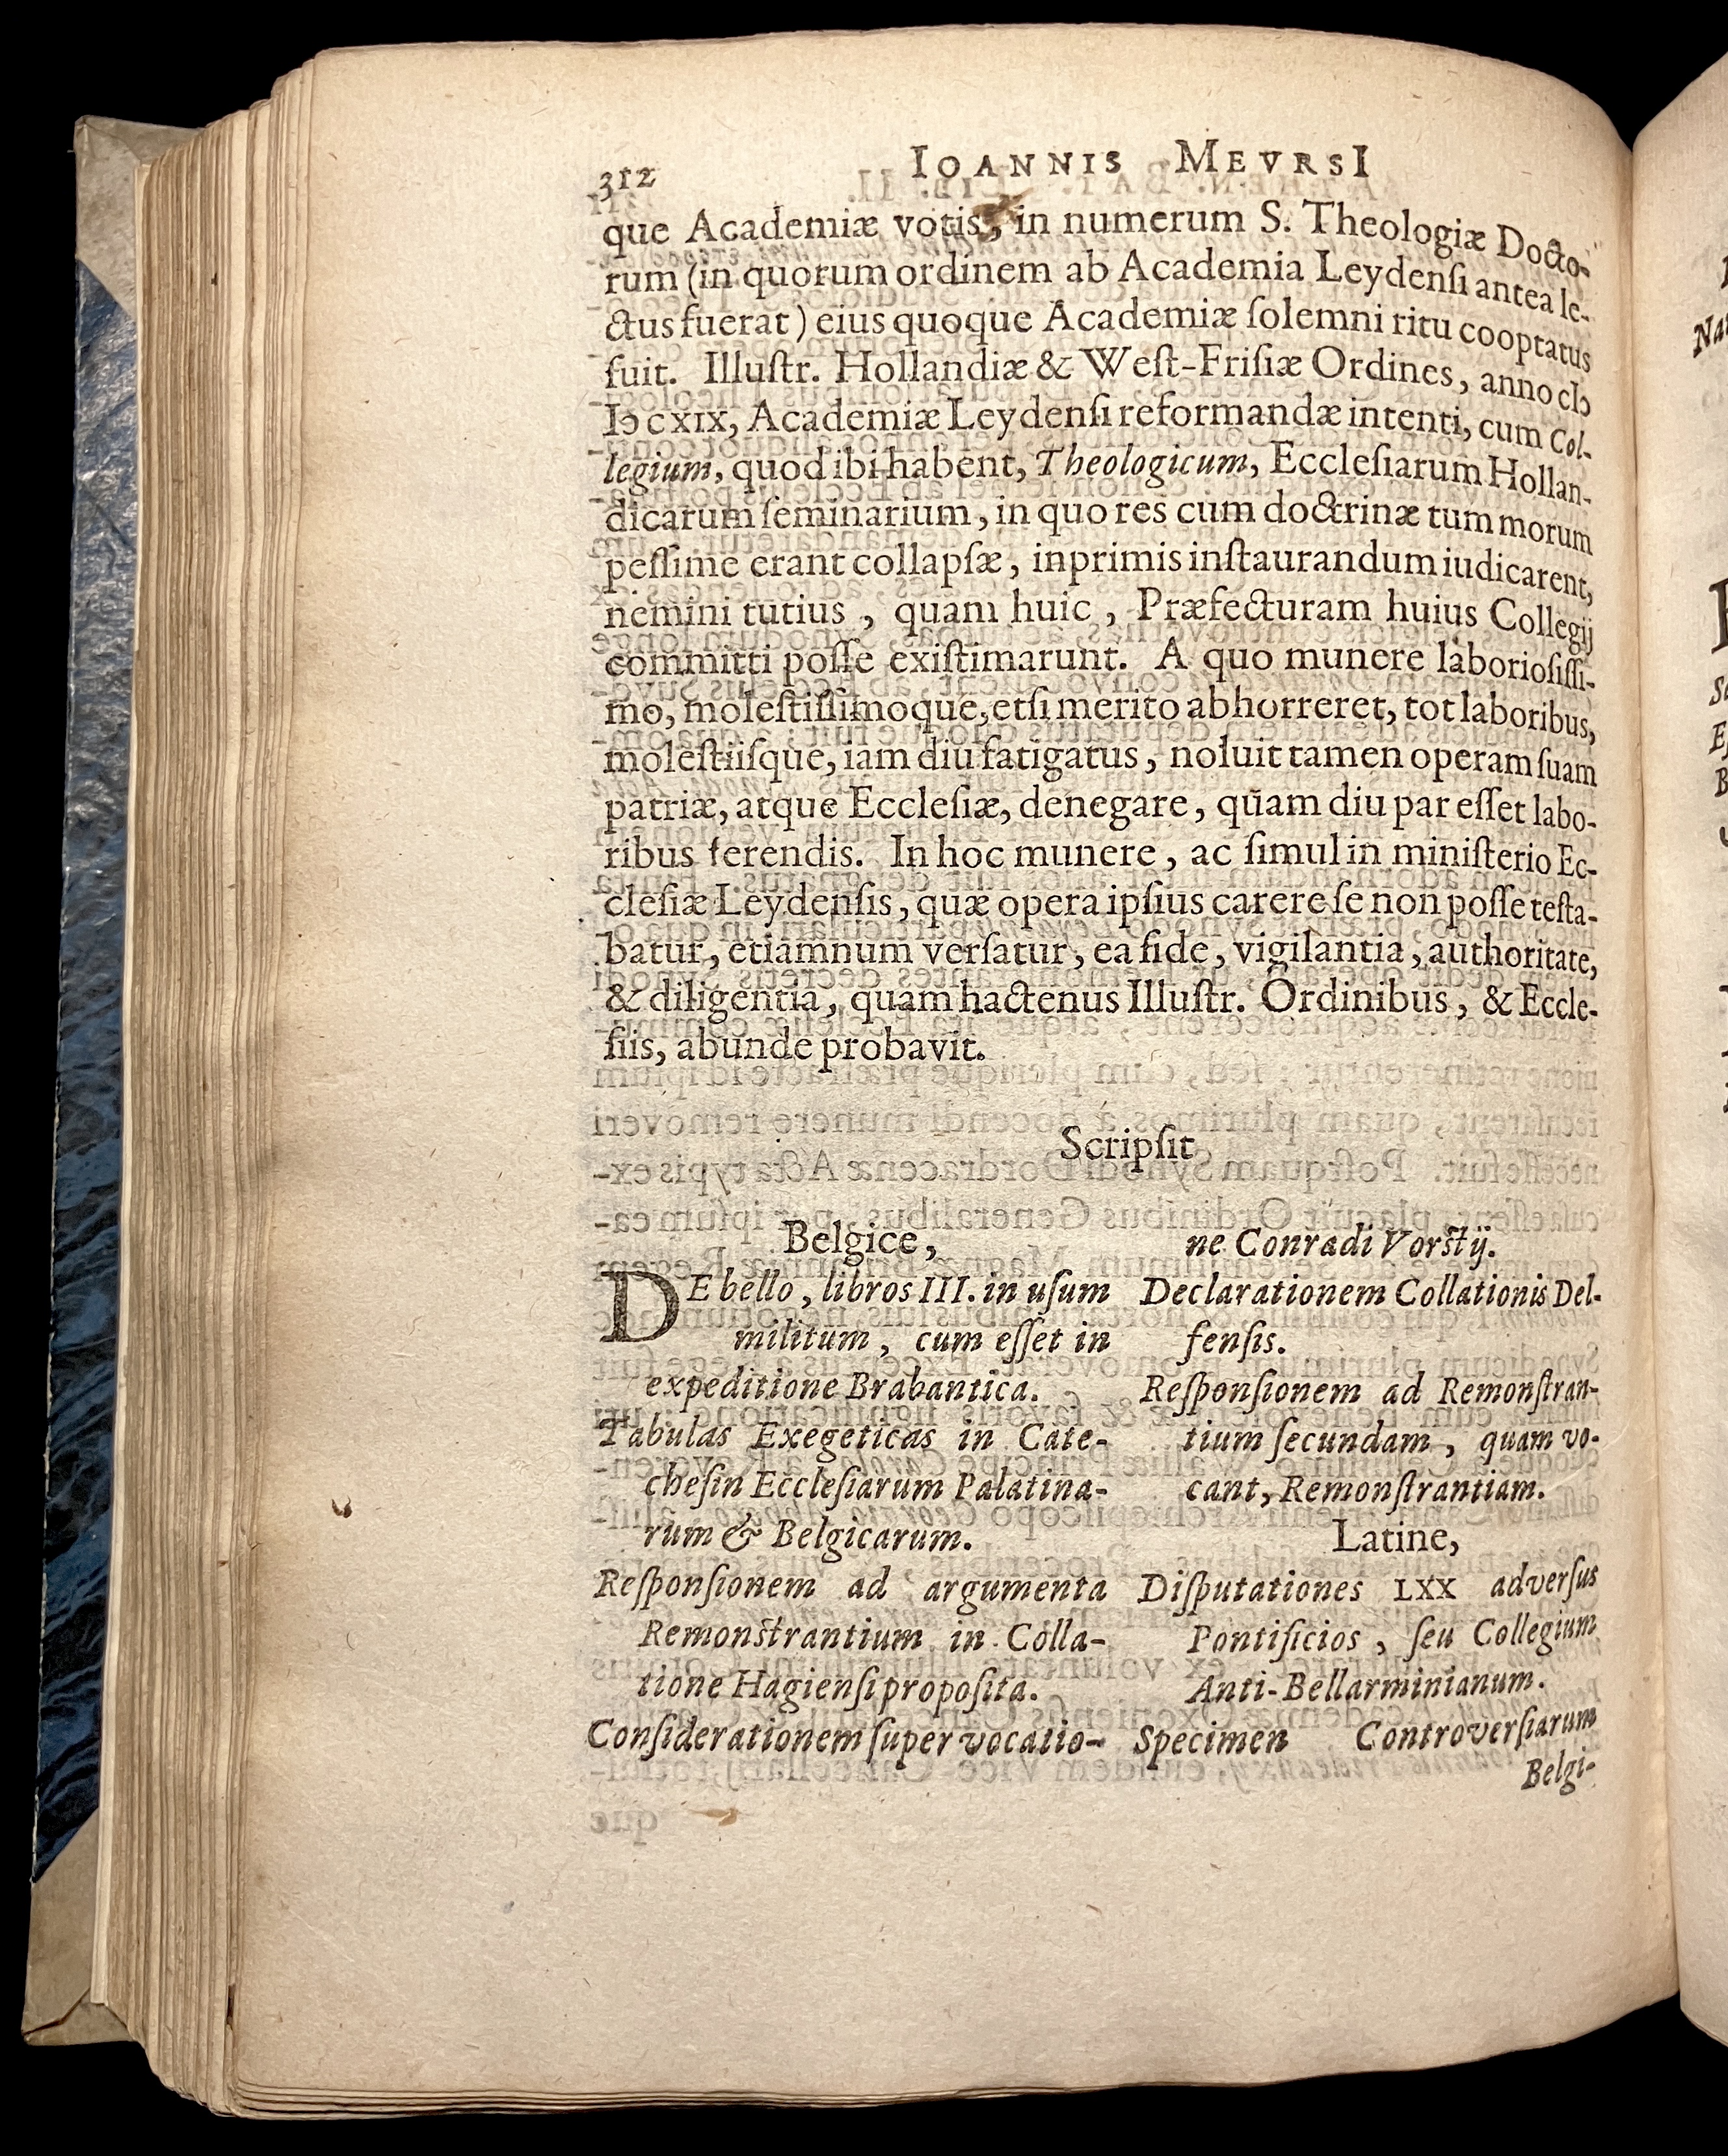 312 IOANNIS MEVRSI
que Academiæ votis, in numerum S. Theologiæ Docto-
rum (in quorum ordinem ab Academia Leydenſi antea le-
ctus fuerat) eius quoque Academiæ ſolemni ritu cooptatus
fuit. Illuſtr. Hollandiæ & Weſt-Friſiæ Ordines, anno cIↄ
Iↄ c xIx, Academiæ Leydenſi reformandæ intenti, cum Col-
legium, quod ibi habent, Theologicum, Eccleſiarum Hollan-
dicarum ſeminarium, in quo res cum doctrinæ tum morum
peſſime erant collapſæ, inprimis inſtaurandum iudicarent,
nemini tutius, quam huic, Præfecturam huius Collegij
committi poſſe exiſtimarunt. A quo munere laborioſiſſi-
mo, moleſtiſſimoque, etſi merito abhorreret, tot laboribus,
moleſtiiſque, iam diu fatigatus, noluit tamen operam ſuam
patriæ, atque Eccleſiæ, denegare, quam diu par eſſet labo-
ribus ferendis. In hoc munere, ac ſimul in miniſterio Ec-
cleſiæ Leydenſis, quæ opera ipſius carere ſe non poſſe teſta-
batur, etiamnum verſatur, ea fide, vigilantia, authoritate,
& diligentia, quam hactenus Illuſtr. Ordinibus, & Eccle-
ſiis, abunde probavit.
Scripſit
Belgice,
DE bello, libros III. in uſum
militum, cum eſſet in
expeditione Brabantica.
Tabulas Exegeticas in Cate-
cheſin Eccleſiarum Palatina-
rum & Belgicarum.
Reſponſionem ad argumenta
Remonſtrantium in Colla-
tione Hagienſi propoſita.
Conſiderationem ſuper vocatio-
ne Conradi Vorſtij.
Declarationem Collationis Del-
fenſis.
Reſponſionem ad Remonſtran-
tium ſecundam, quam vo-
cant, Remonſtrantiam.
Latine,
Diſputationes LXX adverſus
Pontificios, ſeu Collegium
Anti-Bellarminianum.
Specimen Controverſiarum
Belgi-